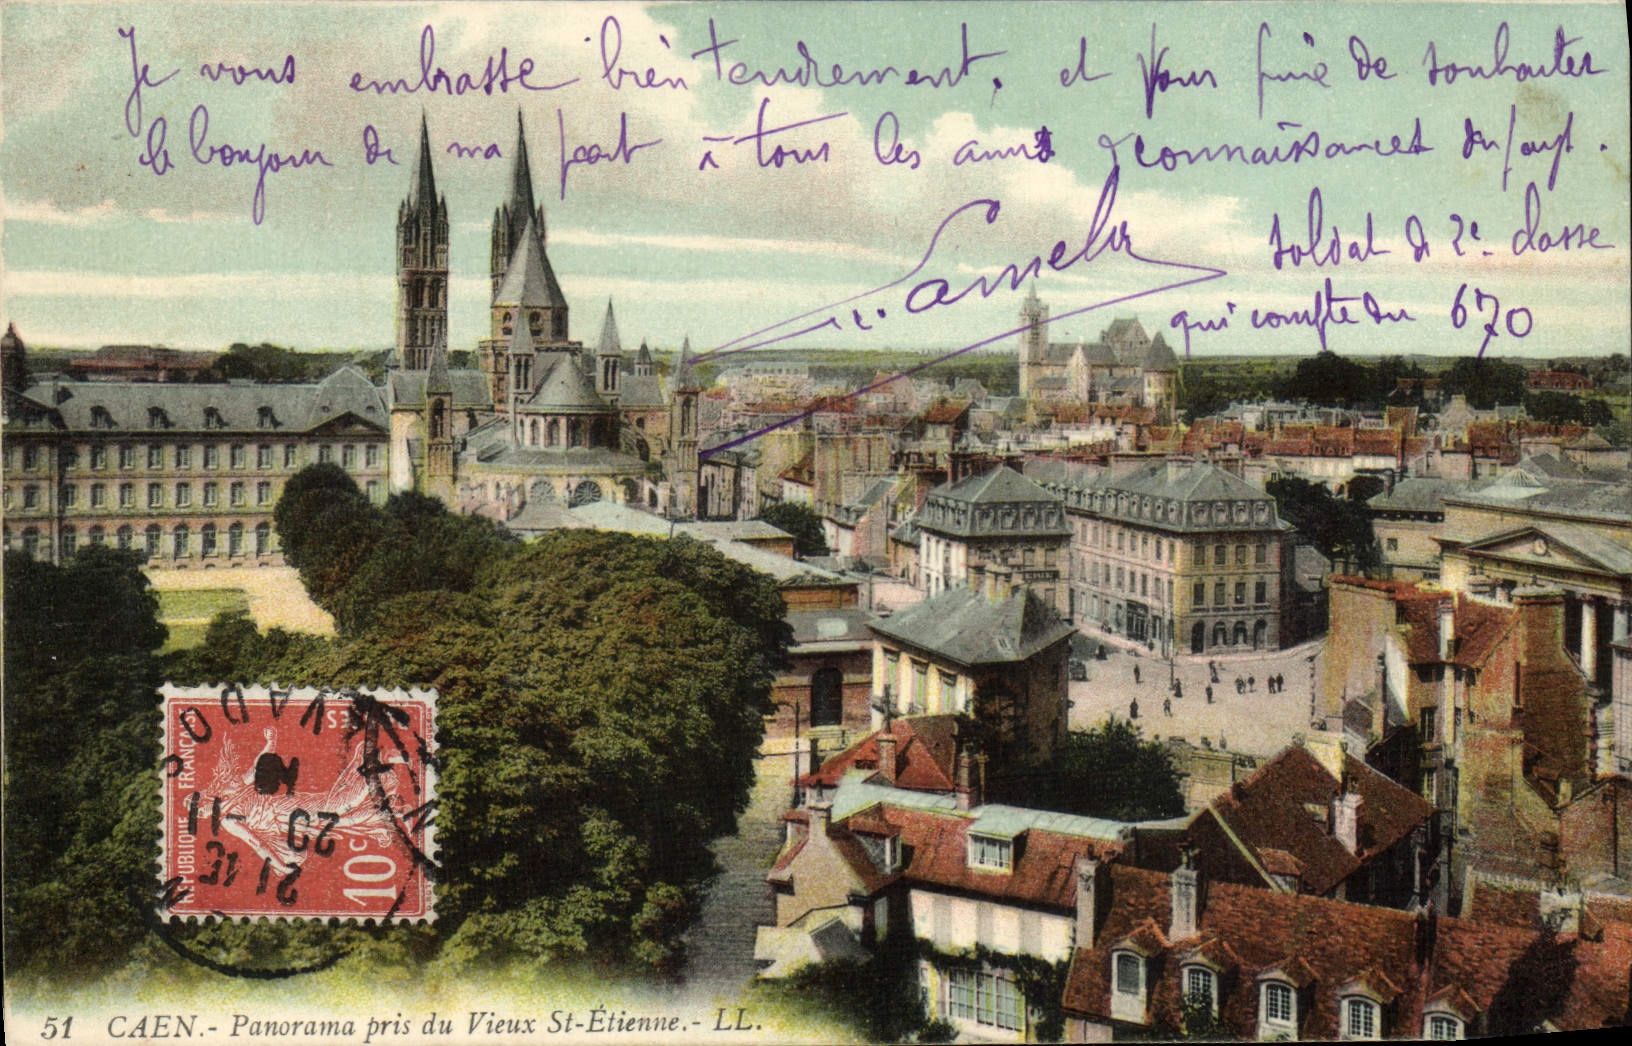 Je vous embrasse bien tendrement, et vous prie de souhaiter
le bonjour de ma part à tous les amis & connaissances du pays.
soldat de 2e classe
qui compte du 670
RÉPUBLIQUE FRANÇAISE
POSTES
10c
CAEN
CALVADOS
21
20 - 11
51 CAEN. - Panorama pris du Vieux St-Étienne. - LL.